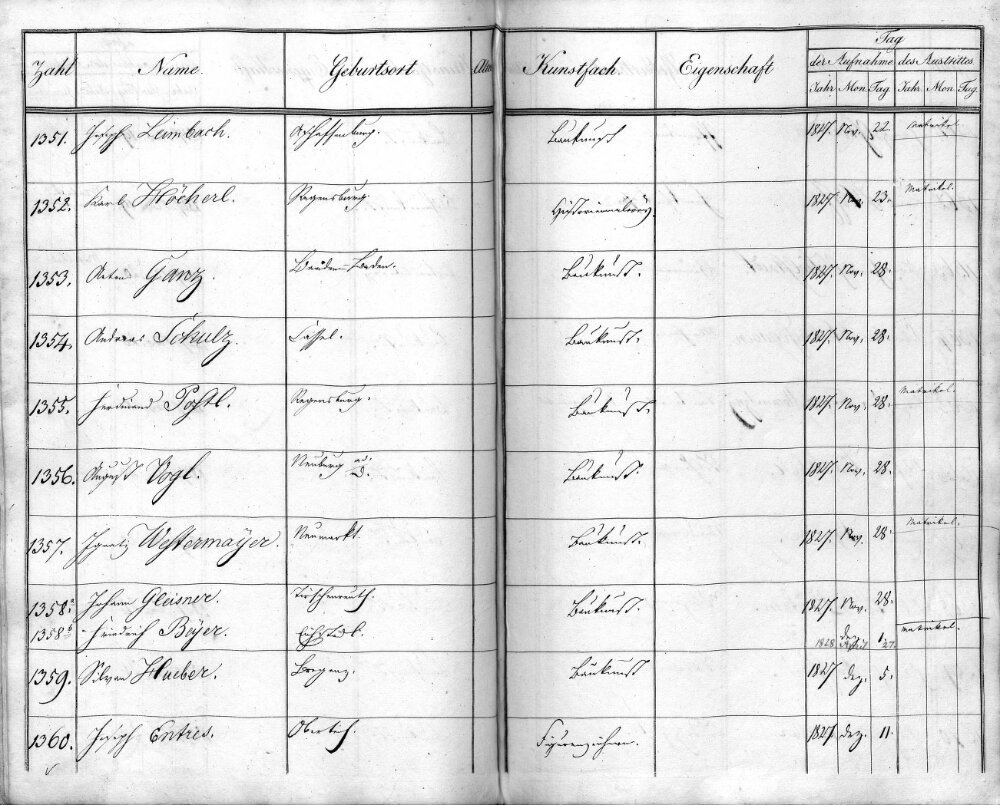 Tag
Zahl Name. Geburtsort Alter Kunstfach Eigenschaft der Aufnahme des Austrittes
Jahr Mon. Tag Jahr. Mon. Tag.
1351. Joseph Leimbach. Aschaffenburg. Baukunst 1827. Nov. 22. Matrikel.
1352. Karl Höcherl. Regensburg. Historienmalerey. 1827. Nov. 23. Matrikel.
1353. Anton Ganz. Baden-Baden. Baukunst. 1827. Nov. 28.
1354. Andreas Schulz Cassel. Baukunst. 1827. Nov. 28.
1355. Ferdinand Postl. Regensburg. Baukunst. 1827. Nov. 28. Matrikel.
1356. August Vogl. Neuburg a./D. Baukunst 1827. Nov. 28.
1357. Ignatz Westermayer. Neumarkt. Baukunst. 1827. Nov. 28. Matrikel.
1358a Johann Gleisner. Tirschenreuth. Baukunst. 1827. Nov. 28.
1358b Friedrich Beyer. Eichstädt. dez. 1. Matrikel.
1828 April 27.
1359. Silvan Hueber. Bregenz. Baukunst 1827 dez. 5.
1360. Joseph Entres. Figurenzeichnen. 1827. dez. 11.